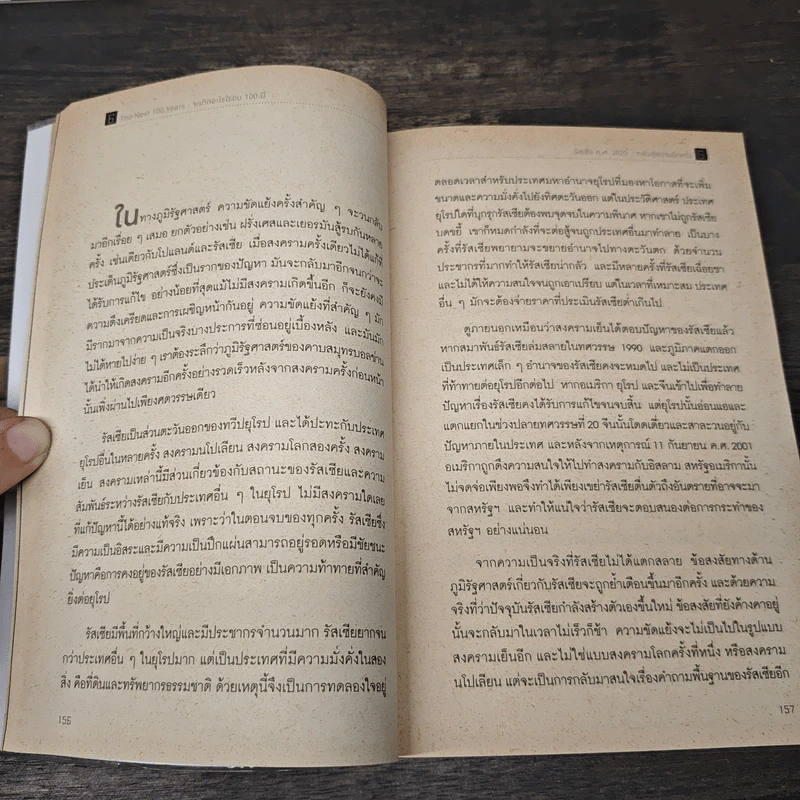 6 The Next 100 Years : จะเกิดอะไรในรอบ 100 ปี
ในทางภูมิรัฐศาสตร์ ความขัดแย้งครั้งสำคัญ ๆ จะวนกลับ
มาอีกเรื่อย ๆ เสมอ ยกตัวอย่างเช่น ฝรั่งเศสและเยอรมันสู้รบกันหลาย
ครั้ง เช่นเดียวกับโปแลนด์และรัสเซีย เมื่อสงครามครั้งเดียวไม่ได้แก้ที่
ประเด็นภูมิรัฐศาสตร์ซึ่งเป็นรากของปัญหา มันจะกลับมาอีกจนกว่าจะ
ได้รับการแก้ไข อย่างน้อยที่สุดแม้ไม่มีสงครามเกิดขึ้นอีก ก็จะยังคงมี
ความตึงเครียดและการเผชิญหน้ากันอยู่ ความขัดแย้งที่สำคัญ ๆ มัก
มีรากมาจากความเป็นจริงบางประการที่ซ่อนอยู่เบื้องหลัง และมันมัก
ไม่ได้หายไปง่าย ๆ เราต้องระลึกว่าภูมิรัฐศาสตร์ของคาบสมุทรบอลข่าน
ได้นำให้เกิดสงครามอีกครั้งอย่างรวดเร็วหลังจากสงครามครั้งก่อนหน้า
นั้นเพิ่งผ่านไปเพียงศตวรรษเดียว
รัสเซียเป็นส่วนตะวันออกของทวีปยุโรป และได้ปะทะกับประเทศ
ยุโรปอื่นในหลายครั้ง สงครามนโปเลียน สงครามโลกสองครั้ง สงคราม
เย็น สงครามเหล่านี้มีส่วนเกี่ยวข้องกับสถานะของรัสเซียและความ
สัมพันธ์ระหว่างรัสเซียกับประเทศอื่น ๆ ในยุโรป ไม่มีสงครามใดเลย
ที่แก้ปัญหานี้ได้อย่างแท้จริง เพราะว่าในตอนจบของทุกครั้ง รัสเซียซึ่ง
มีความเป็นอิสระและมีความเป็นปึกแผ่นสามารถอยู่รอดหรือมีชัยชนะ
ปัญหาคือการคงอยู่ของรัสเซียอย่างมีเอกภาพ เป็นความท้าทายที่สำคัญ
ยิ่งต่อยุโรป
รัสเซียมีพื้นที่กว้างใหญ่และมีประชากรจำนวนมาก รัสเซียยากจน
กว่าประเทศอื่น ๆ ในยุโรปมาก แต่เป็นประเทศที่มีความมั่งคั่งในสอง
สิ่ง คือที่ดินและทรัพยากรธรรมชาติ ด้วยเหตุนี้จึงเป็นการทดลองใจอยู่
156
รัสเซีย ค.ศ. 2020 : 6
ตลอดเวลาสำหรับประเทศมหาอำนาจยุโรปที่มองหาโอกาสที่จะเพิ่ม
ขนาดและความมั่งคั่งไปยังทิศตะวันออก แต่ในประวัติศาสตร์ ประเทศ
ยุโรปใดที่บุกรุกรัสเซียต้องพบจุดจบในความพินาศ หากเขาไม่ถูกรัสเซีย
บดขยี้ เขาก็หมดกำลังที่จะต่อสู้จนถูกประเทศอื่นมาทำลาย เป็นบาง
ครั้งที่รัสเซียพยายามจะขยายอำนาจไปทางตะวันตก ด้วยจำนวน
ประชากรที่มากทำให้รัสเซียน่ากลัว และมีหลายครั้งที่รัสเซียเฉื่อยชา
และไม่ได้ให้ความสนใจจนถูกเอาเปรียบ แต่ในเวลาที่เหมาะสม ประเทศ
อื่น ๆ มักจะต้องจ่ายราคาที่ประเมินรัสเซียต่ำเกินไป
ดูภายนอกเหมือนว่าสงครามเย็นได้ตอบปัญหาของรัสเซียแล้ว
หากสมาพันธ์รัสเซียล่มสลายในทศวรรษ 1990 และภูมิภาคแตกออก
เป็นประเทศเล็ก ๆ อำนาจของรัสเซียคงจะหมดไป และไม่เป็นประเทศ
ที่ท้าทายต่อยุโรปอีกต่อไป หากอเมริกา ยุโรป และจีนเข้าไปเพื่อทำลาย
ปัญหาเรื่องรัสเซียคงได้รับการแก้ไขจนจบสิ้น แต่ยุโรปนั้นอ่อนแอและ
แตกแยกในช่วงปลายศตวรรษที่ 20 จีนนั้นโดดเดี่ยวและสาละวนอยู่กับ
ปัญหาภายในประเทศ และหลังจากเหตุการณ์ 11 กันยายน ค.ศ. 2001
อเมริกาถูกดึงความสนใจให้ไปทำสงครามกับอิสลาม สหรัฐอเมริกานั้น
ไม่จดจ่อเพียงพอจึงทำได้เพียงเขย่ารัสเซียตื่นตัวถึงอันตรายที่อาจจะมา
จากสหรัฐฯ และทำให้แน่ใจว่ารัสเซียจะตอบสนองต่อการกระทำของ
สหรัฐฯ อย่างแน่นอน
จากความเป็นจริงที่รัสเซียไม่ได้แตกสลาย ข้อสงสัยทางด้าน
ภูมิรัฐศาสตร์เกี่ยวกับรัสเซียจะถูกย้ำเตือนขึ้นมาอีกครั้ง และด้วยความ
จริงที่ว่าปัจจุบันรัสเซียกำลังสร้างตัวเองขึ้นใหม่ ข้อสงสัยที่ยังค้างคาอยู่
นั้นจะกลับมาในเวลาไม่เร็วก็ช้า ความขัดแย้งจะไม่เป็นไปในรูปแบบ
สงครามเย็นอีก และไม่ใช่แบบสงครามโลกครั้งที่หนึ่ง หรือสงคราม
นโปเลียน แต่จะเป็นการกลับมาสนใจเรื่องคำถามพื้นฐานของรัสเซียอีก
157